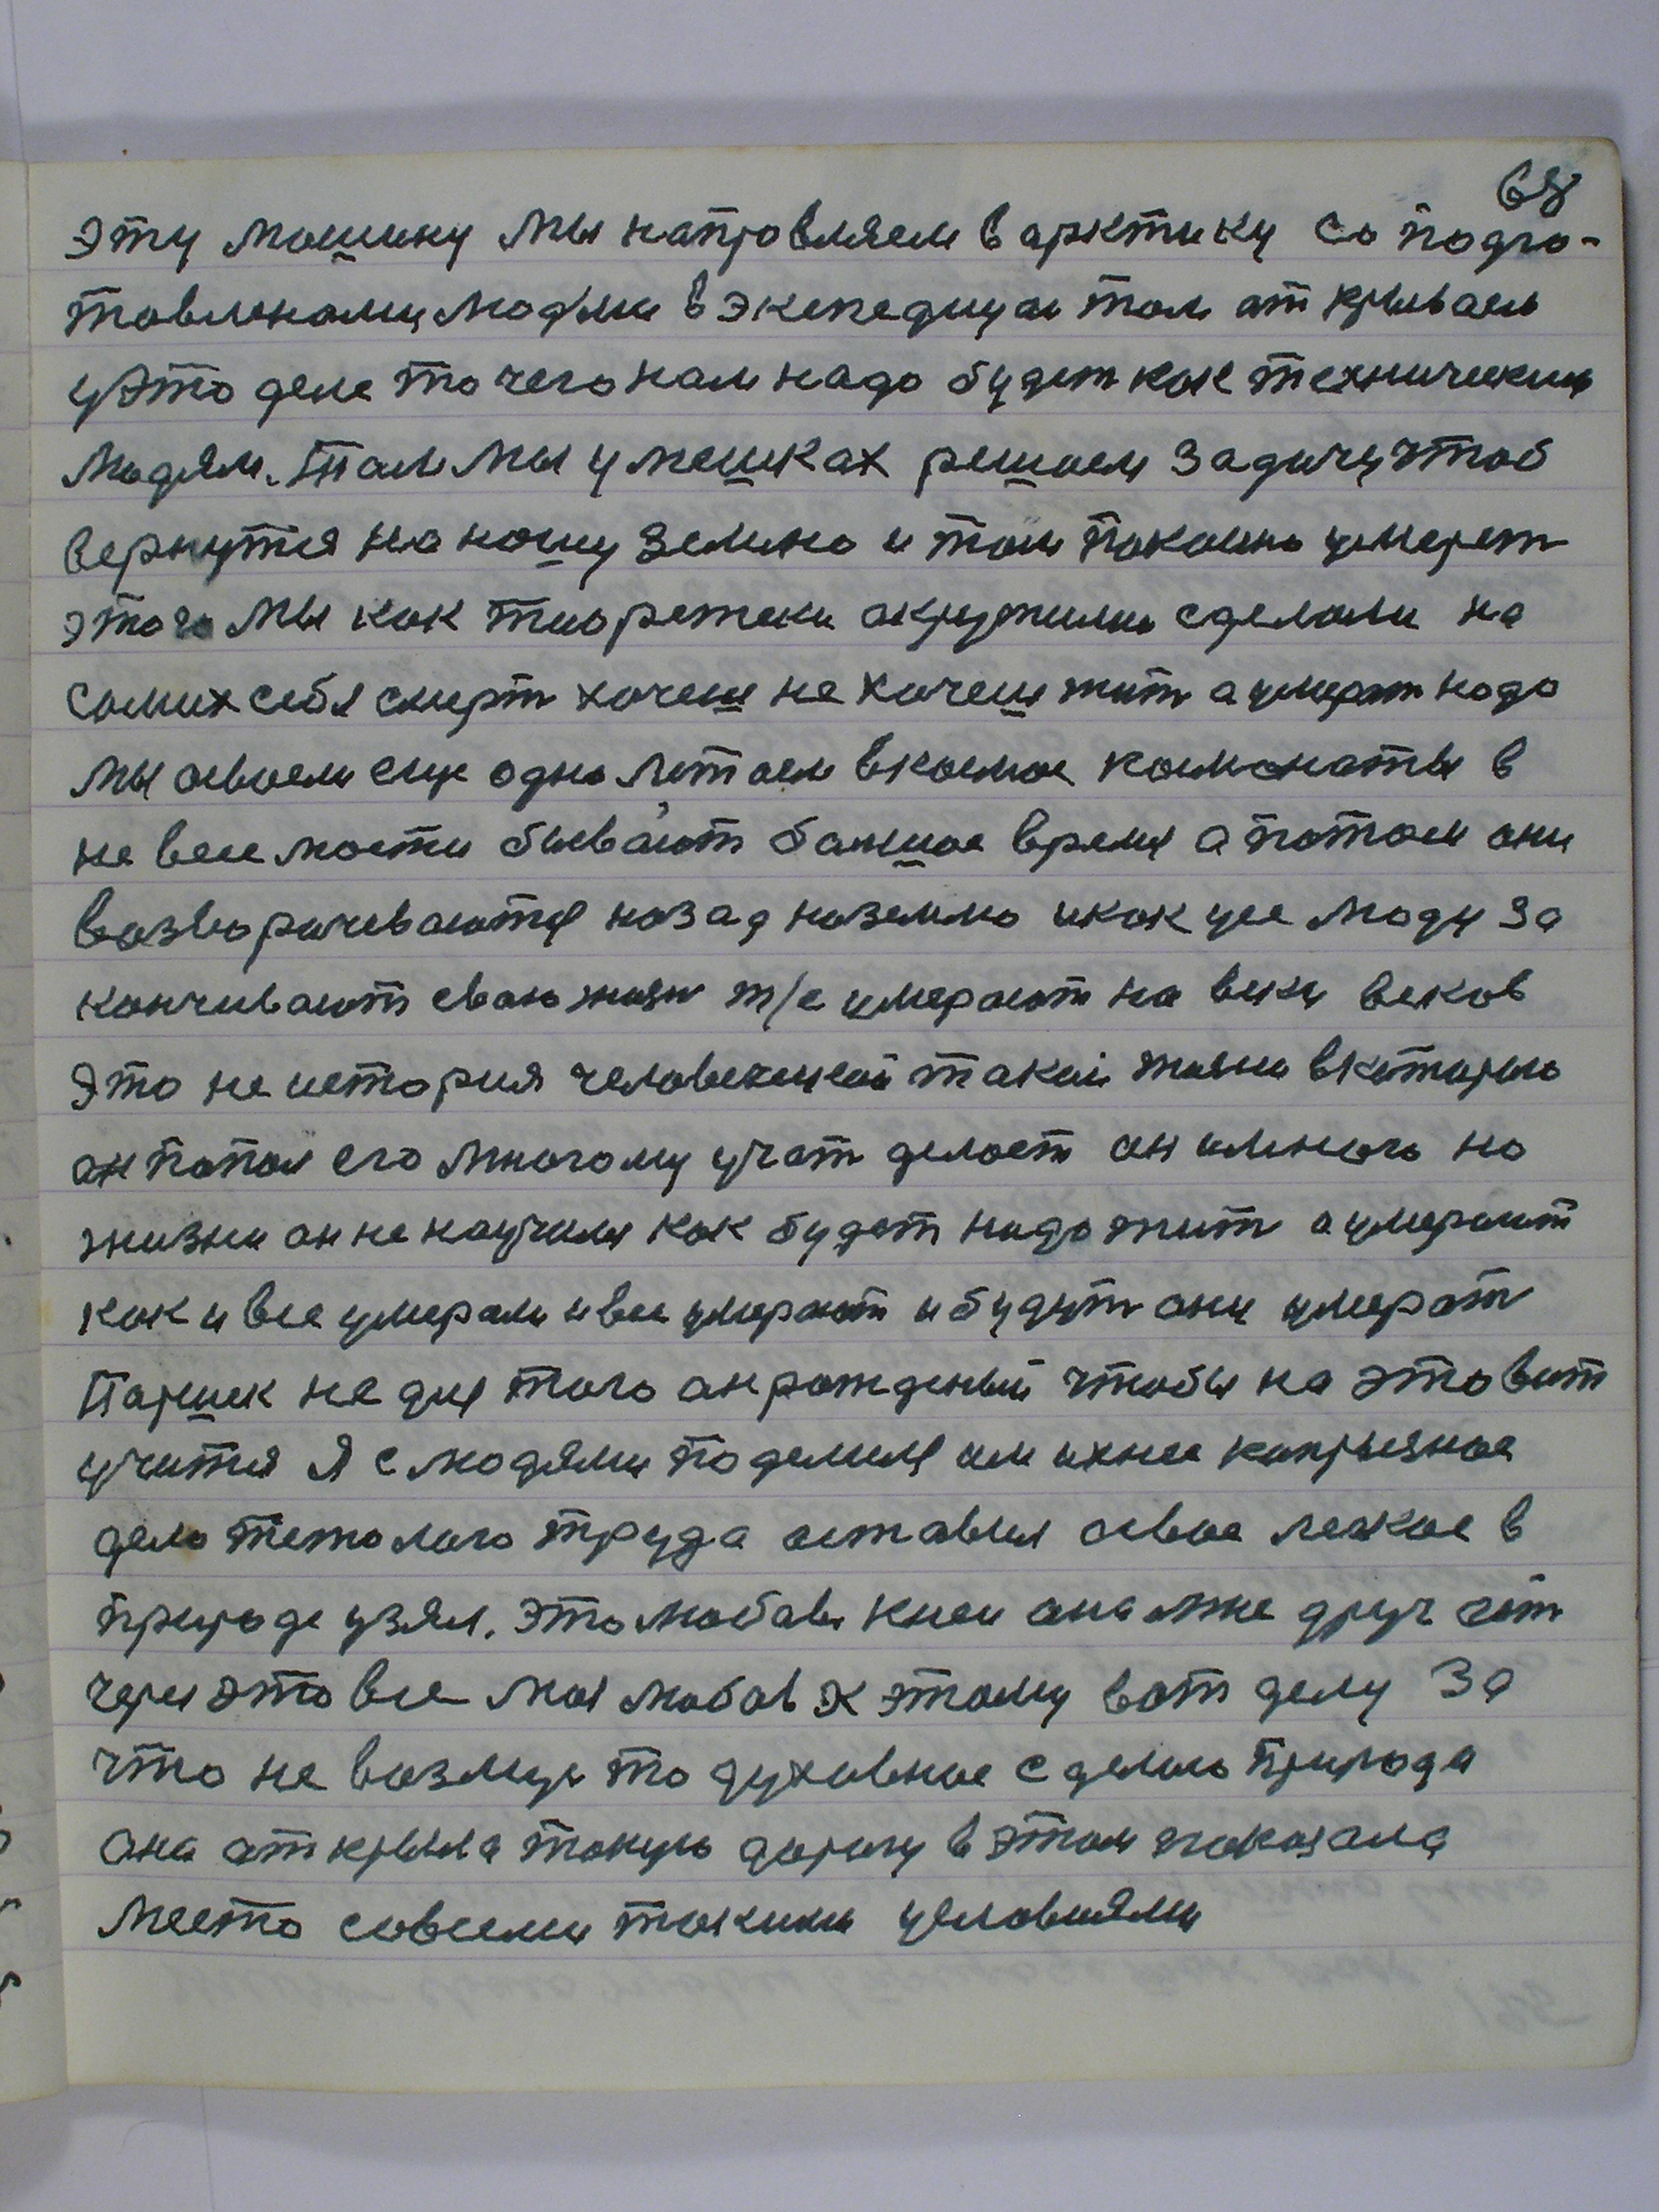 68
эту мошину мы напровляем в арктику со подго-
товленоми людьми в экспедицаи там аткриваем
у это деле то чего нам надо будет как техническим
людям. Там мы у мешках решаем задачу чтоб
вернутся на нашу землю и там покоино умерет
этого мы как тиоретеки акружили сделали на
самих себя смерт хочеш не хочеш жит а умерат надо
мы освоем еще одно летаем вкосмос космонаты в
не весмости бывают башное время а потом они
возворачеваются назад наземлю икак усе люди за
канчивают сваю жизн т/е умерают на веки веков
Это не история человеческой такой жизни вкоторую
он попал его многому учат делает он имного но
жизни он не научился как будет надо жит а умерают
как и все умерали и все умерают и будут они умерат
Паршек не для того он рожденый чтобы на это вот
учится я с людями поделился им ихнее капрызное
дело тежолаго труда оставил освое легкое в
природе узял. это любовь кнеи она мне друг ёт
через это все моя любов к этому вот делу За
что не возмус то духовное сделаю природа
она аткрыла такую дорогу в этом показала
место совсеми такими условиями